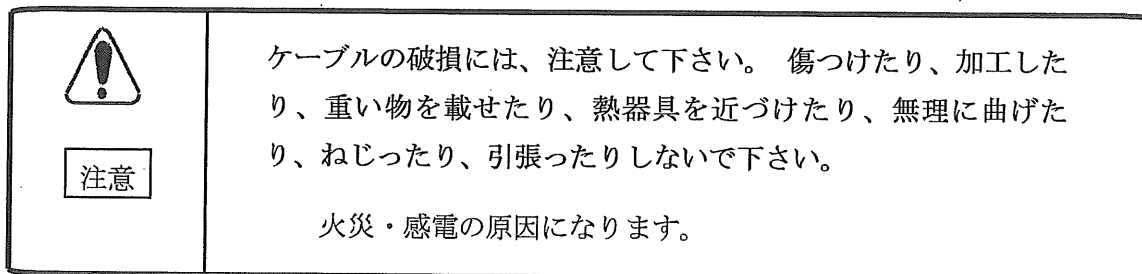 注意
ケーブルの破損には、注意して下さい。 傷つけたり、加工した
り、重い物を載せたり、熱器具を近づけたり、無理に曲げた
り、ねじったり、引張ったりしないで下さい。
火災・感電の原因になります。